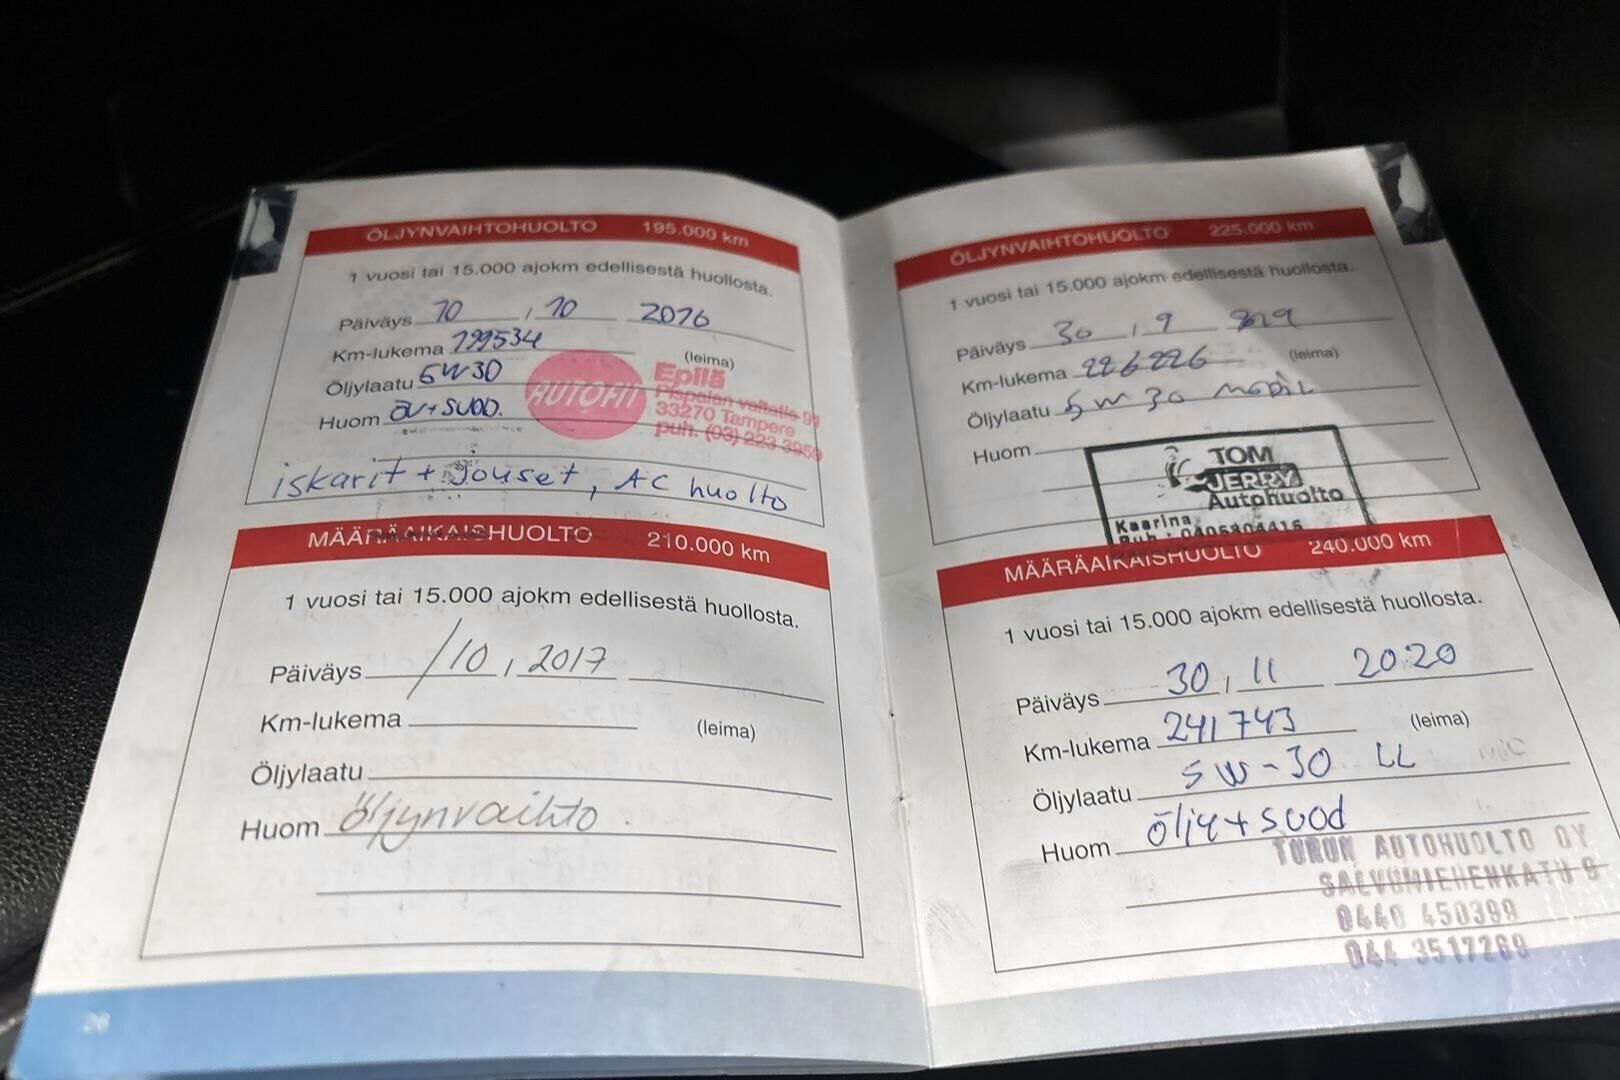 ÖLJYNVAIHTOHUOLTO 195.000 km
1 vuosi tai 15.000 ajokm edellisestä huollosta.
Päiväys 10 , 10 2016
Km-lukema 199534 (leima)
Öljylaatu 5W30
Huom ÖV+SUOD.
AUTOFIT
Epilä
Pispalan valtatie 91
33270 Tampere
puh. (03) 223 3959
iskarit + jouset, AC huolto
MÄÄRÄAIKAISHUOLTO 210.000 km
1 vuosi tai 15.000 ajokm edellisestä huollosta.
Päiväys /10 , 2017
Km-lukema (leima)
Öljylaatu
Huom Öljynvaihto
26
ÖLJYNVAIHTOHUOLTO 225.000 km
1 vuosi tai 15.000 ajokm edellisestä huollosta.
Päiväys 30 , 9 2019
Km-lukema 226226 (leima)
Öljylaatu 5W30 MOBIL
Huom
TOM
JERRY
Autohuolto
Kaarina
Puh. 0405804416
MÄÄRÄAIKAISHUOLTO 240.000 km
1 vuosi tai 15.000 ajokm edellisestä huollosta.
Päiväys 30 , 11 2020
Km-lukema 241743 (leima)
Öljylaatu 5W-30 LL
Huom öljy+suod
TURUN AUTOHUOLTO OY
SALVUMIEHENKATU 9
0440 450399
044 3517269